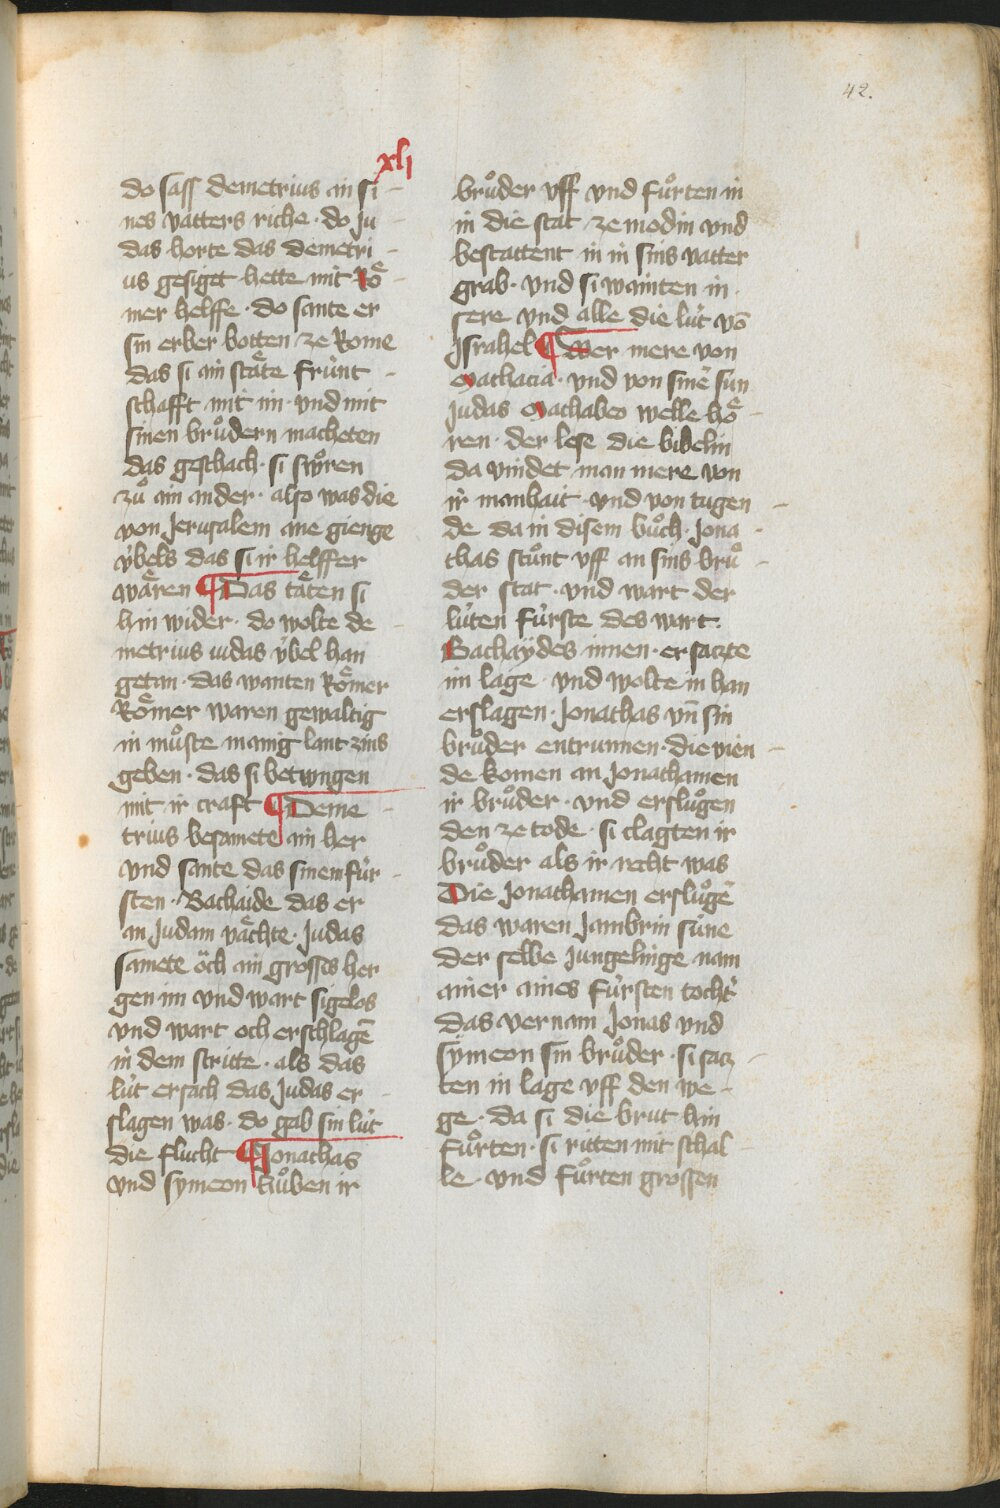 42.
xlj
do sass demetrius in si-
nes vatters riche · do ju
das horte das demetri-
us gesiget hette mit Roͤ-
mer helffe · do sante er
sin erber botten ze Rome
das si ain staͤte fruͤnt-
schafft mit im · vnd mit
sinen bruͦdern macheten
das geschach · si swuͦren
zuͦ ain ander · also was die
von Jerusalem ane gienge
vͤbels das si ir helffer
waͤren ¶ Das taͤten si
hin wider · do wolte de-
metrius iudas vͤbel han
getan · das wanten Roͤmer
Roͤmer waren gewaltig
in muͦste manig lant zins
geben · das si betwngen
mit ir craft ¶ Deme-
trius besamete ain her
vnd sante das sinem fuͤr-
sten · Bachaide das er
an Judam vaͤchte · Judas
samete oͤch ain grosses her
gen im vnd wart sigelos
vnd wart och erschlagē
in dem stritte · als das
luͤt ersach das Judas er-
slagen was · do gab sin luͤt
die flucht ¶ Jonathas
vnd symeon huͦben ir
bruͦder vff vnd fuͦrten in
in die stat ze modin vnd
bestattent in in sins vatter
grab · vnd si wainten in ·
sere vnd alle die luͤt vō
Jsrahel ¶ Wer mere von
Mathacia · vnd von sinē sun
Judas Machabeo welle hoͤ-
ren · der lese die bibelin
da vindet man mere von
ir manhait · vnd von tugen-
de da in disem buͦch · Jona-
thas stuͦnt vff an sins bruͦ-
der stat · vnd wart der
luͤten fuͤrste des wart ·
Bachaÿdes innen · er sazte
im lage · vnd wolte in han
erslagen · Jonathas vn̄ sin
bruͦder entrunnen · die vien-
de komen an Jonathamen
ir bruͦder · vnd ersluͦgen
den ze tode · si clagten ir
bruͦder als ir recht was
Die Jonathamen ersluͦgē
das waren Jambrin suͤne
der selbe Jungelinge nam
ainer aines fuͤrsten tocht'
das vernam Jonas vnd
sÿmeon sin bruͦder · si satz-
ten in lage vff den we-
ge · da si die brut hin
fuͦrten · si ritten mit schal-
le · vnd fuͦrten grossen